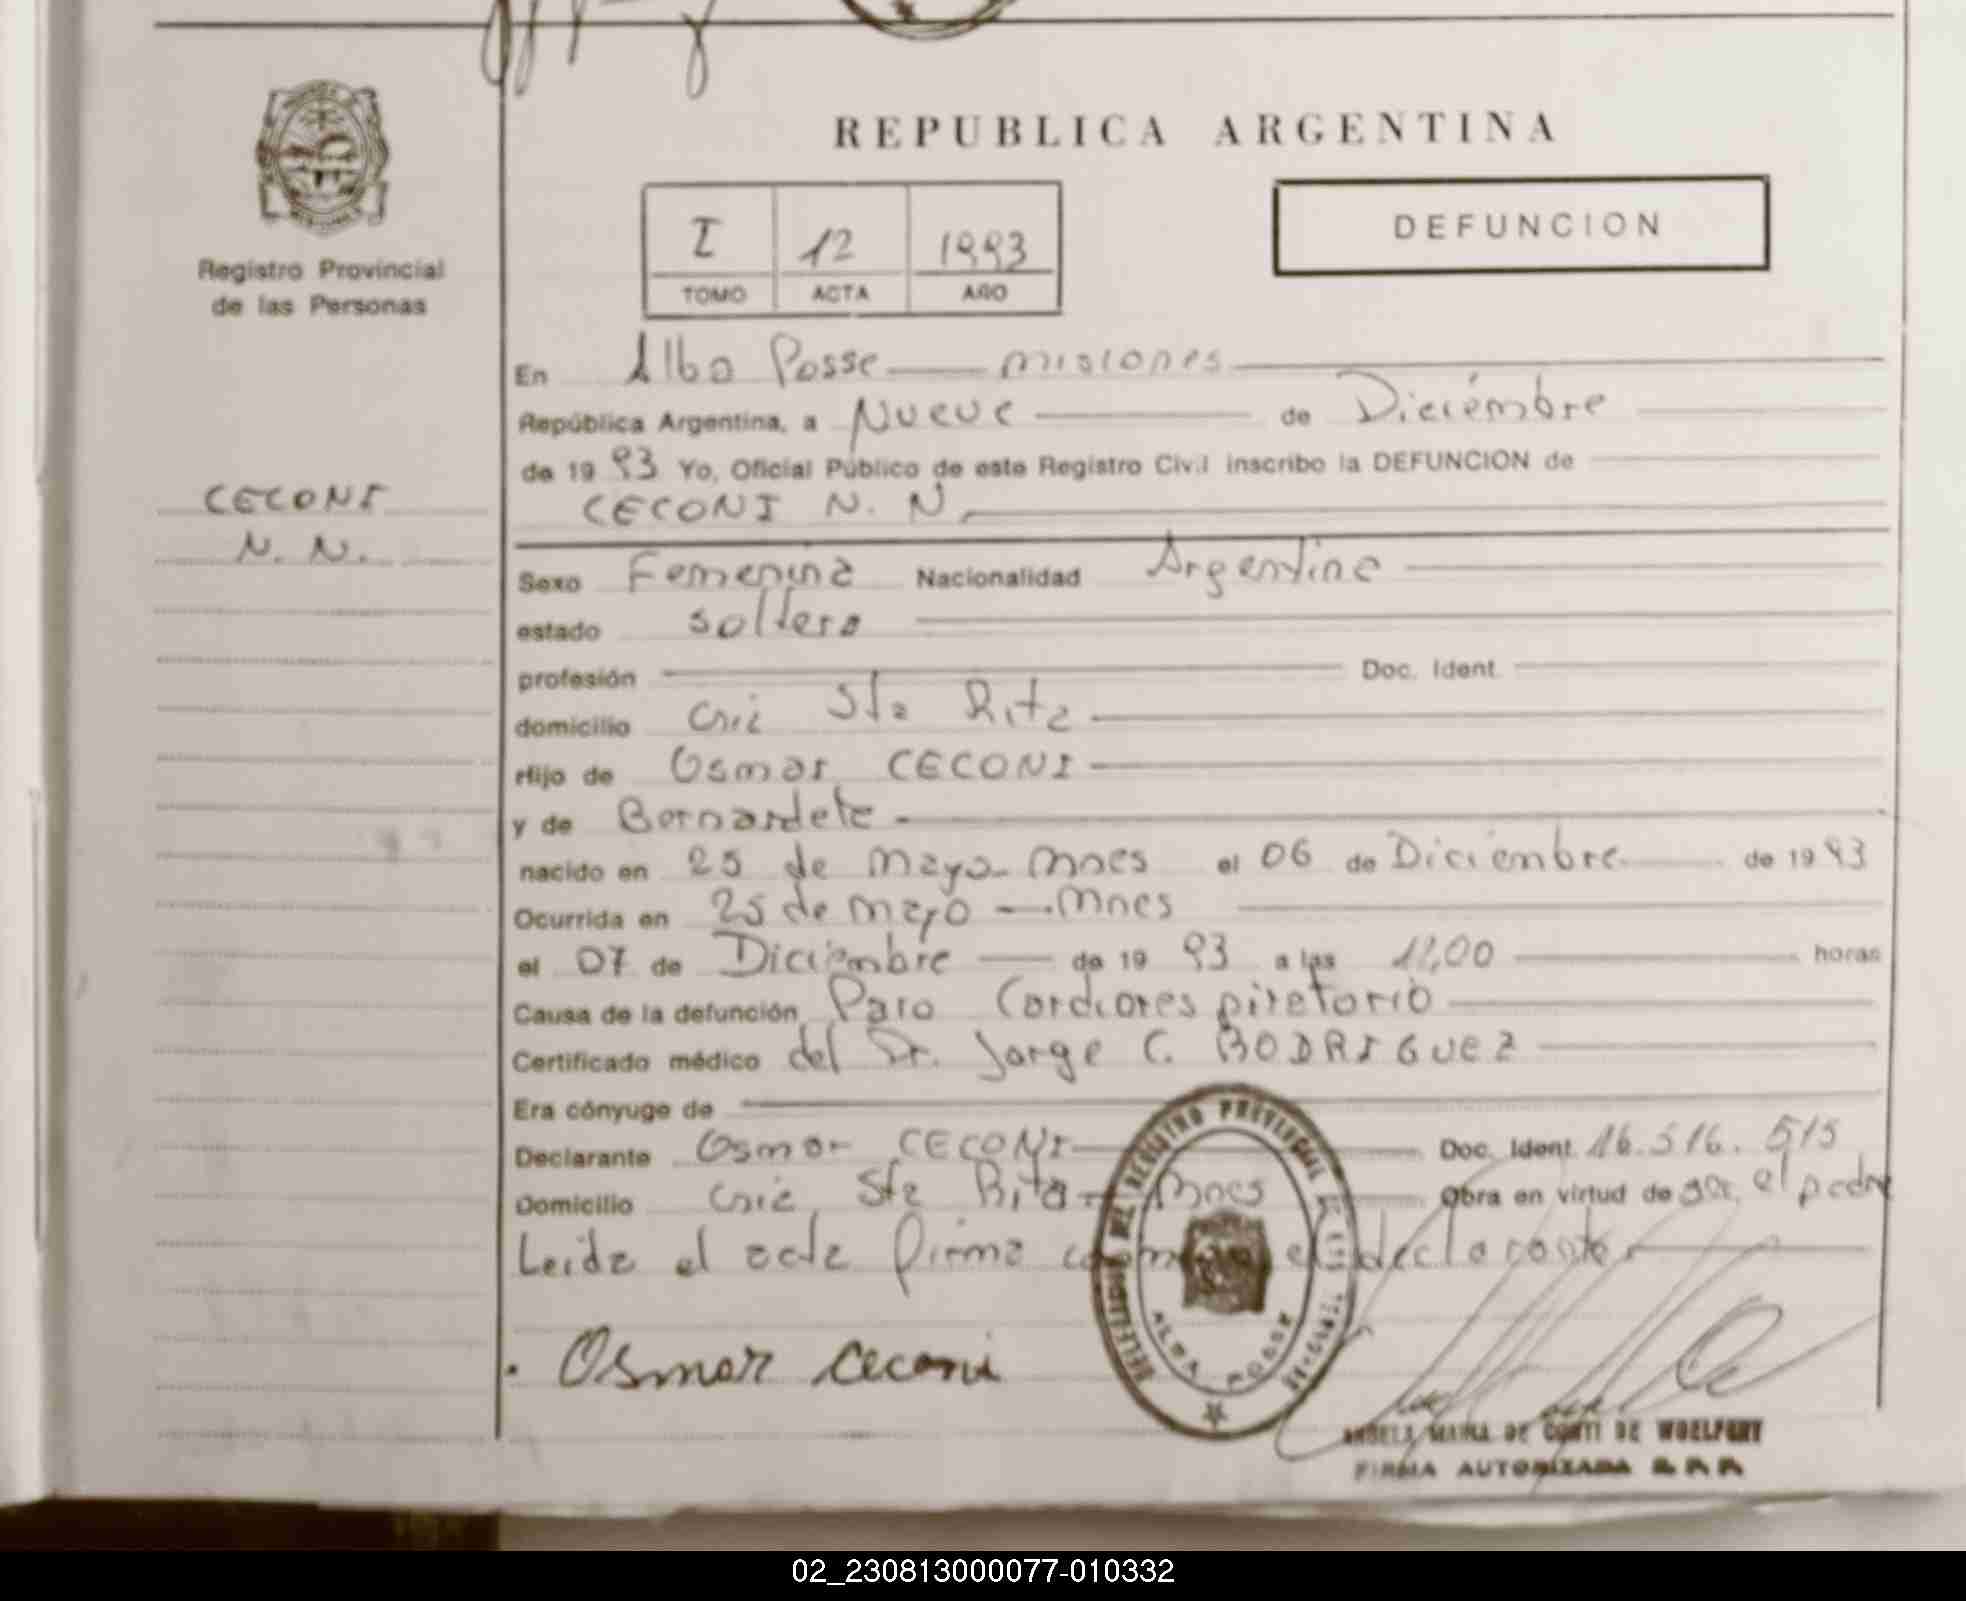 REPUBLICA ARGENTINA
DEFUNCION
Registro Provincial
de las Personas
I 12 1993
TOMO ACTA AÑO
En Alba Posse misiones
República Argentina, a Nueve de Diciémbre
de 19 93 Yo, Oficial Público de este Registro Civil inscribo la DEFUNCION de
CECONI N. N.
CECONI
N. N.
Sexo Femenina Nacionalidad Argentina
estado soltera
profesión Doc. Ident.
domicilio Cnia Sta Rita
Hijo de Osmar CECONI
y de Bernardete
nacido en 25 de Mayo - Mnes el 06 de Diciembre de 19 93
Ocurrida en 25 de mayo - Mnes
el 07 de Diciembre de 19 93 a las horas
Causa de la defunción Paro Cardiorespiretorio
Certificado médico del Dr. Jorge C. RODRIGUEZ
Era cónyuge de
Declarante Osmar CECONI Doc. Ident. 16.516.515
Domicilio Cnia Sta Rita - Mnes Obra en virtud de ser el padre
Leida el acta firma el declarante
Osmar Ceconi
DEL REGISTRO PROVINCIAL DE LAS
ALBA POSSE
DE WOELFERT
FIRMA AUTORIZADA R.P.P.
02_230813000077-010332